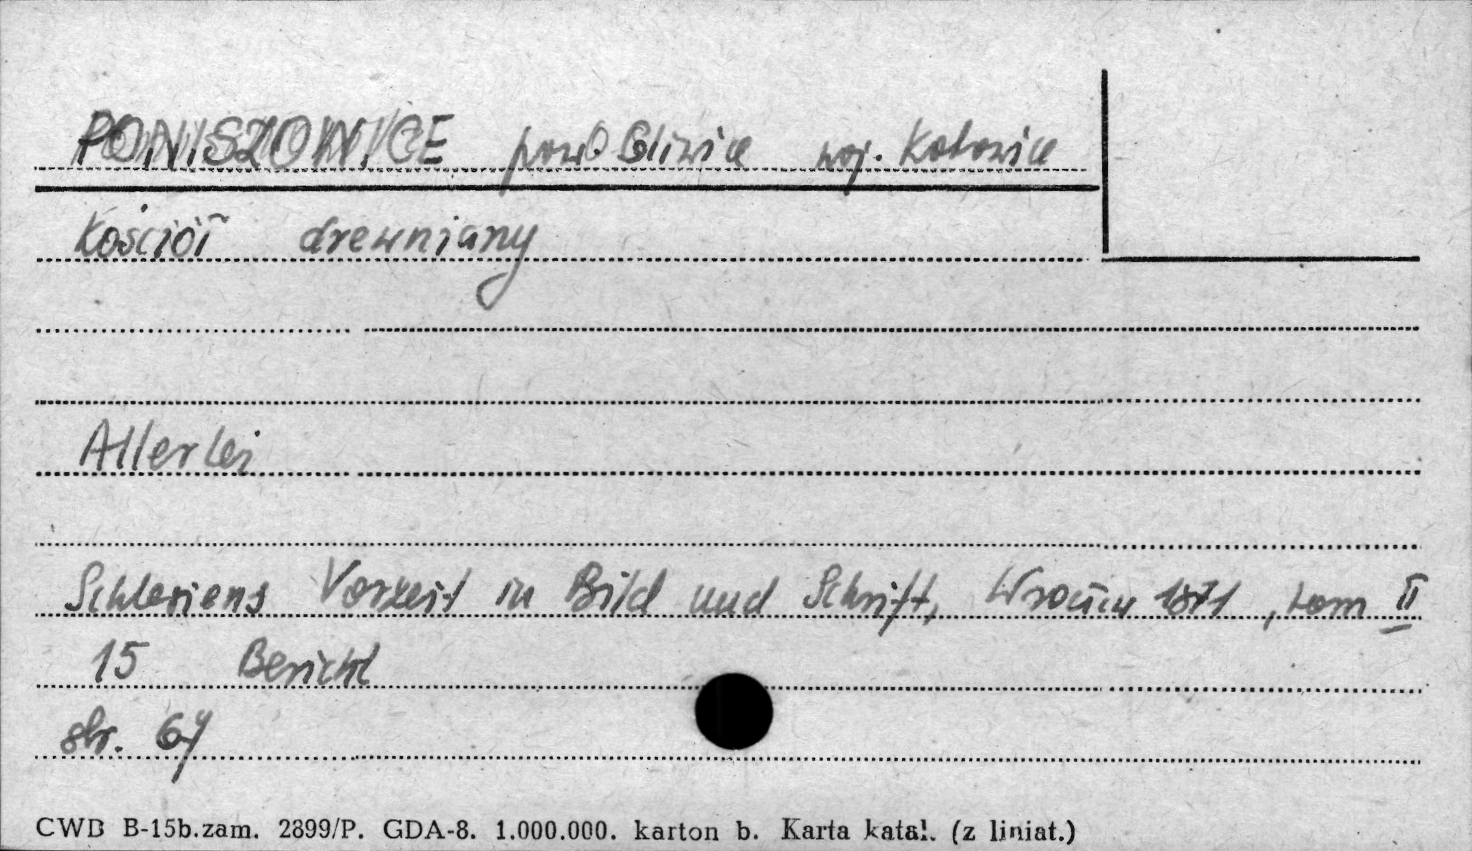 PONISZOWICE pow. Gliwice woj. Katowice
Kościół drewniany
Allerlei
Schlesiens Vorzeit in Bild und Schrift, Wrocław 1871, tom II
15 Bericht
str. 64
CWD B-15b.zam. 2899/P. GDA-8. 1.000.000. karton b. Karta katal. (z liniat.)